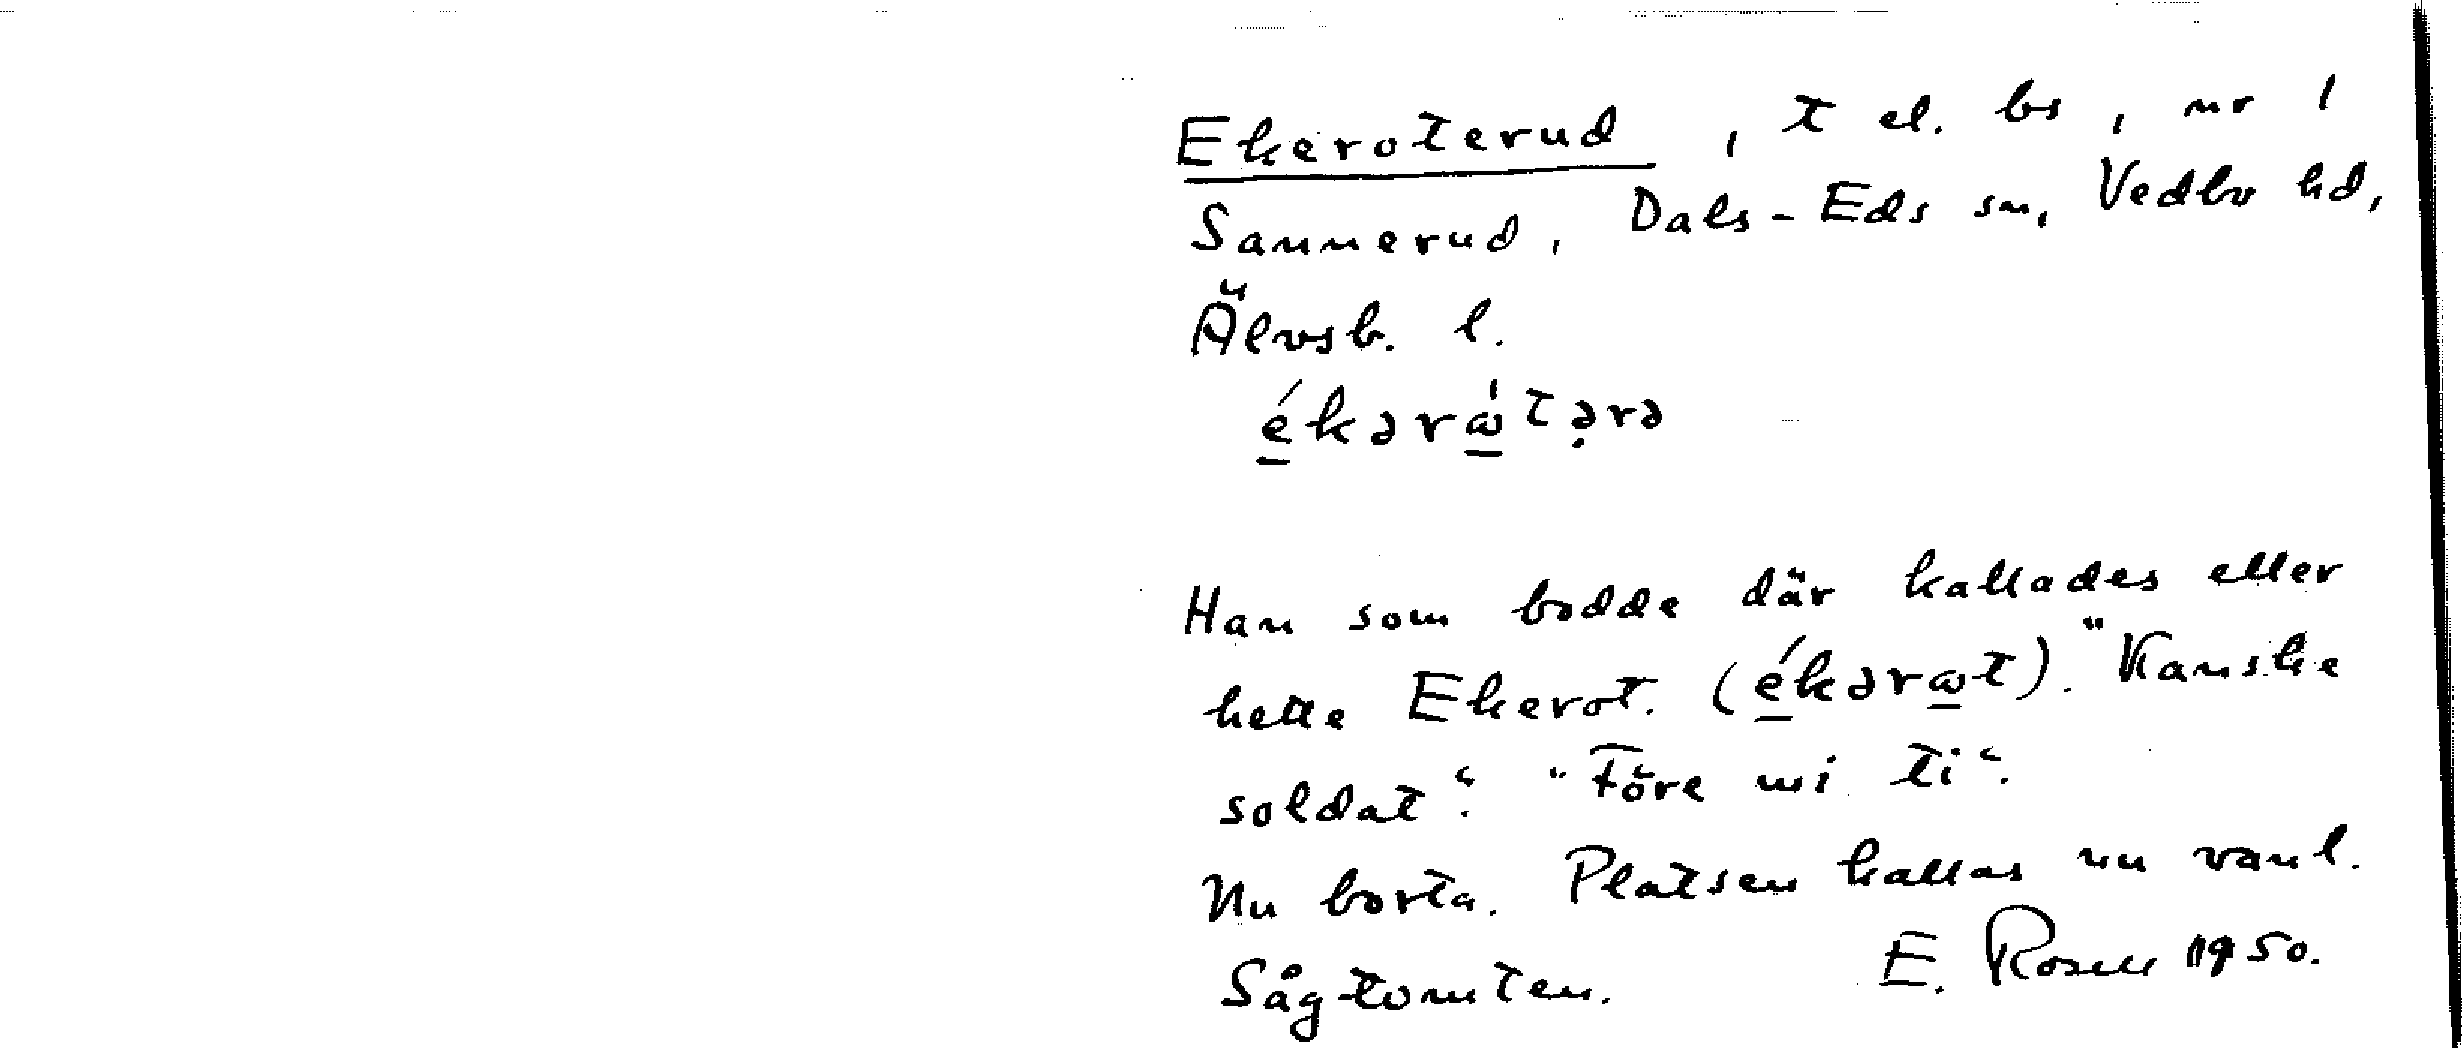 Ekeroterud, t el. bs, nr 1
Sannerud, Dals-Eds sn, Vedbo hd,
Älvsb. l.
ékərὼtərə
Han som bodde där kallades eller
hette Ekerot. (ékərωt). "Kanske
soldat". "Före mi ti".
Nu borta. Platsen kallas nu vanl.
Sågtomten. E. Rosell 1950.